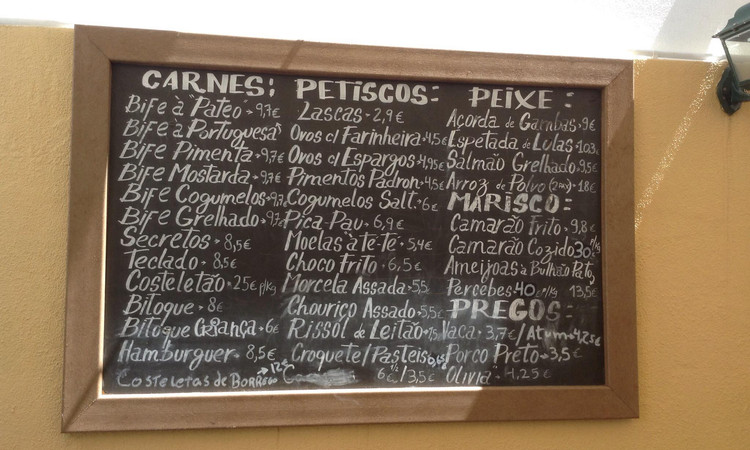 CARNES:
Bife à "Pateo" • 9,7€
Bife à Portuguesa"
Bife Pimenta • 9,7€
Bife Mostarda • 9,7€
Bife Cogumelos • 9,7
Bife Grelhado • 9,7
Secretos • 8,5€
Teclado • 8,5€
Costeletão • 25€ p/kg
Bitoque • 8€
Bitoque Criança • 6€
Hamburguer • 8,5€
Costeletas de Borrego → 12€
PETISCOS:
Lascas - 2,9€
Ovos c/ Farinheira • 4,5€
Ovos c/ Espargos • 4,95€
Pimentos Padron • 4,5€
Cogumelos Salt. • 6€
Pica-Pau • 6,9€
Moelas à Te-Te • 5,4€
Choco Frito • 6,5€
Morcela Assada • 5,5
Chouriço Assado • 5,5€
Rissol de Leitão
Croquete/Pasteis
6€ 1/2 / 3,5€
PEIXE:
Açorda de Gambas • 9€
Espetada de Lulas
Salmão Grelhado • 9,5€
Arroz de Polvo (2 pax) - 18€
MARISCO:
Camarão Frito • 9,8€
Camarão Cozido 30€/kg
Ameijoas à Bulhão Pato
13,5€
Percebes • 40€/kg
PREGOS:
Vaca • 3,7€ / Atum • 4,25€
Porco Preto • 3,5€
Olivia" • 4,25€